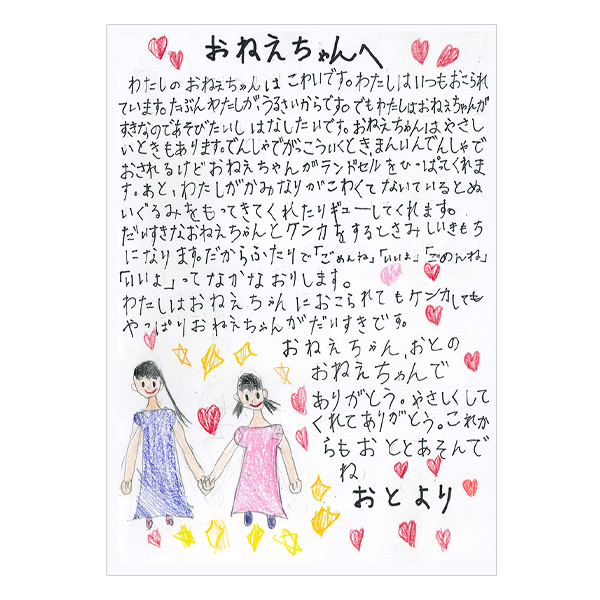 おねえちゃんへ
わたしのおねえちゃんはこわいです。わたしはいつもおこられ
ています。たぶんわたしが、うるさいからです。でもわたしはおねえちゃんが
すきなのであそびたいしはなしたいです。おねえちゃんはやさし
いときもあります。でんしゃでがっこういくとき、まんいんでんしゃで
おされるけどおねえちゃんがランドセルをひっぱってくれま
す。あと、わたしがかみなりがこわくてないているとぬ
いぐるみをもってきてくれたりギューしてくれます。
だいすきなおねえちゃんとケンカをするとさみしいきもち
になります。だからふたりで「ごめんね」「いいよ」「ごめんね」
「いいよ」ってなかなおりします。
わたしはおねえちゃんにおこられてもケンカしても
やっぱりおねえちゃんがだいすきです。
おねえちゃん、おとの
おねえちゃんで
ありがとう。やさしくして
くれてありがとう。これか
らもおととあそんで
ね
おとより